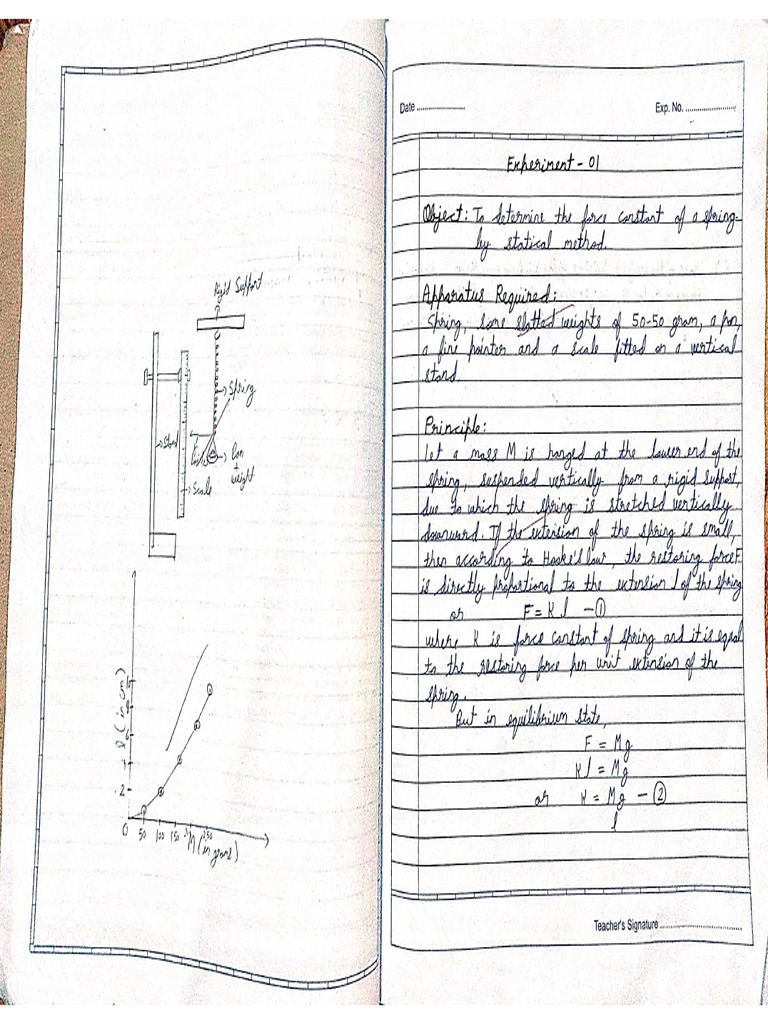 Rigid Support
Spring
Stand
Pan
weight
Scale
l (in cm)
8
6
2
0
50
100
150
250
M (in grams)
Date
Exp. No.
Experiment - 01
Object: To determine the force constant of a spring
by statical method.
Apparatus Required:
Spring, some slotted weights of 50-50 gram, a pan,
a fine pointer and a scale fitted on a vertical
stand.
Principle:
Let a mass M is hanged at the lower end of the
spring, suspended vertically from a rigid support,
due to which the spring is stretched vertically
downward. If the extension of the spring is small,
then according to Hooke's law, the restoring force F
is directly proportional to the extension l of the spring
or F = K l - ①
where K is force constant of spring and it is equal
to the restoring force per unit extension of the
spring.
But in equilibrium state,
F = Mg
Kl = Mg
or K = Mg - ②
l
Teacher's Signature